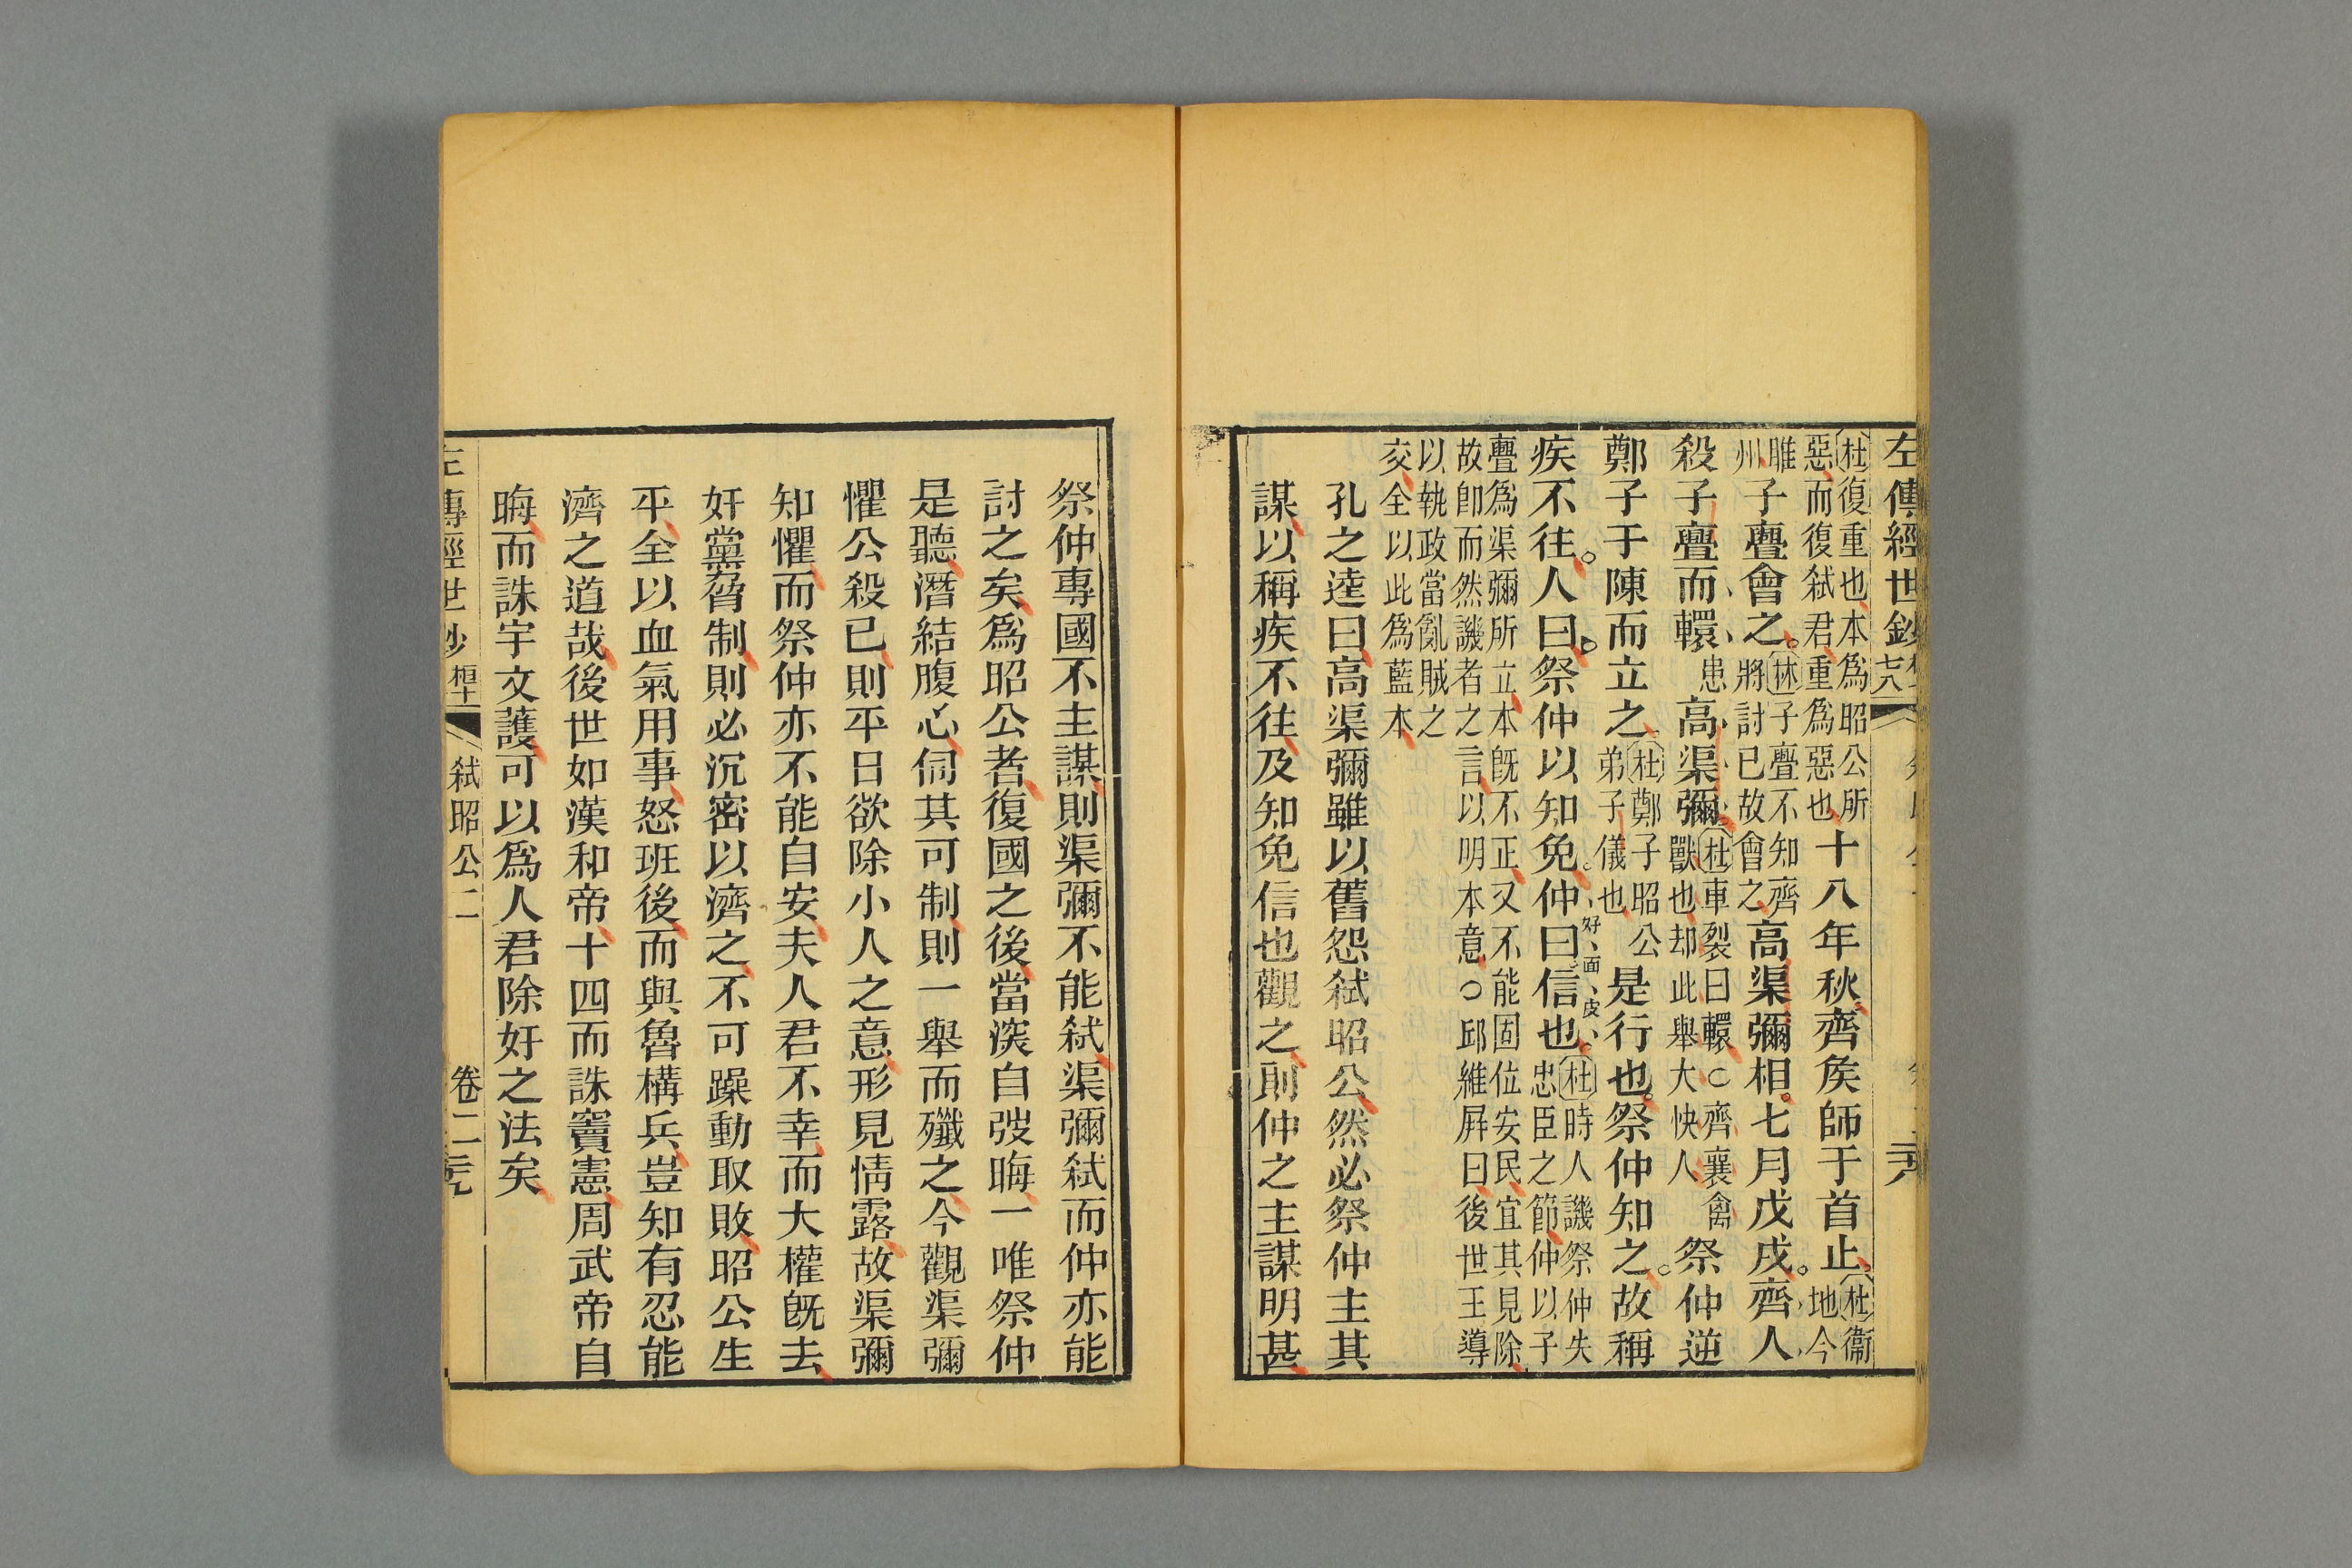 左傳經世鈔
杜復重也本爲昭公所
惡而復弒君重爲惡也
十八年秋齊矦師于首止
杜衞
地今
睢
州
子亹會之
林子亹不知齊
將討已故會之
高渠彌相七月戊戌齊人
殺子亹而轘
患
高渠彌
杜車裂曰轘○齊襄禽
獸也却此舉大快人
祭仲逆
鄭子于陳而立之
杜鄭子昭公
弟子儀也
是行也祭仲知之故稱
疾不往人曰祭仲以知免仲曰信也
好面皮
杜時人譏祭仲失
忠臣之節仲以子
亹爲渠彌所立本旣不正又不能固位安民宜其見除
故卽而然譏者之言以明本意○邱維屛曰後世王導
以執政當亂賊之
交全以此爲藍本
孔之逵曰高渠彌雖以舊怨弒昭公然必祭仲主其
謀以稱疾不往及知免信也觀之則仲之主謀明甚
祭仲專國不主謀則渠彌不能弒渠彌弒而仲亦能
討之矣爲昭公者復國之後當深自弢晦一唯祭仲
是聽潛結腹心伺其可制則一舉而殲之今觀渠彌
懼公殺已則平日欲除小人之意形見情露故渠彌
知懼而祭仲亦不能自安夫人君不幸而大權旣去
奸黨脅制則必沉密以濟之不可躁動取敗昭公生
平全以血氣用事怒班後而與魯構兵豈知有忍能
濟之道哉後世如漢和帝十四而誅竇憲周武帝自
晦而誅宇文護可以爲人君除奸之法矣
傳經世鈔 桓十 弒昭公二 卷二 元